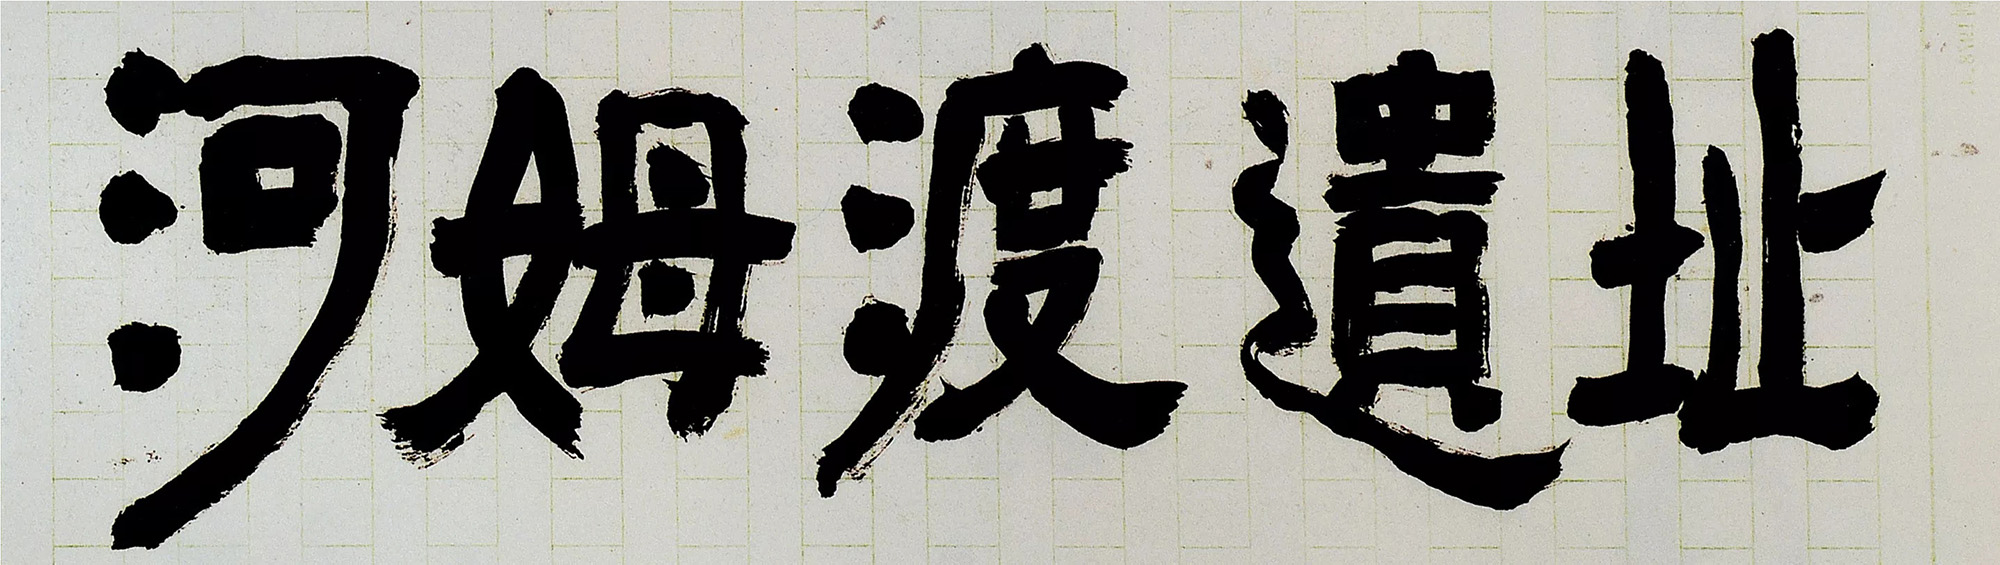 河姆渡遺址